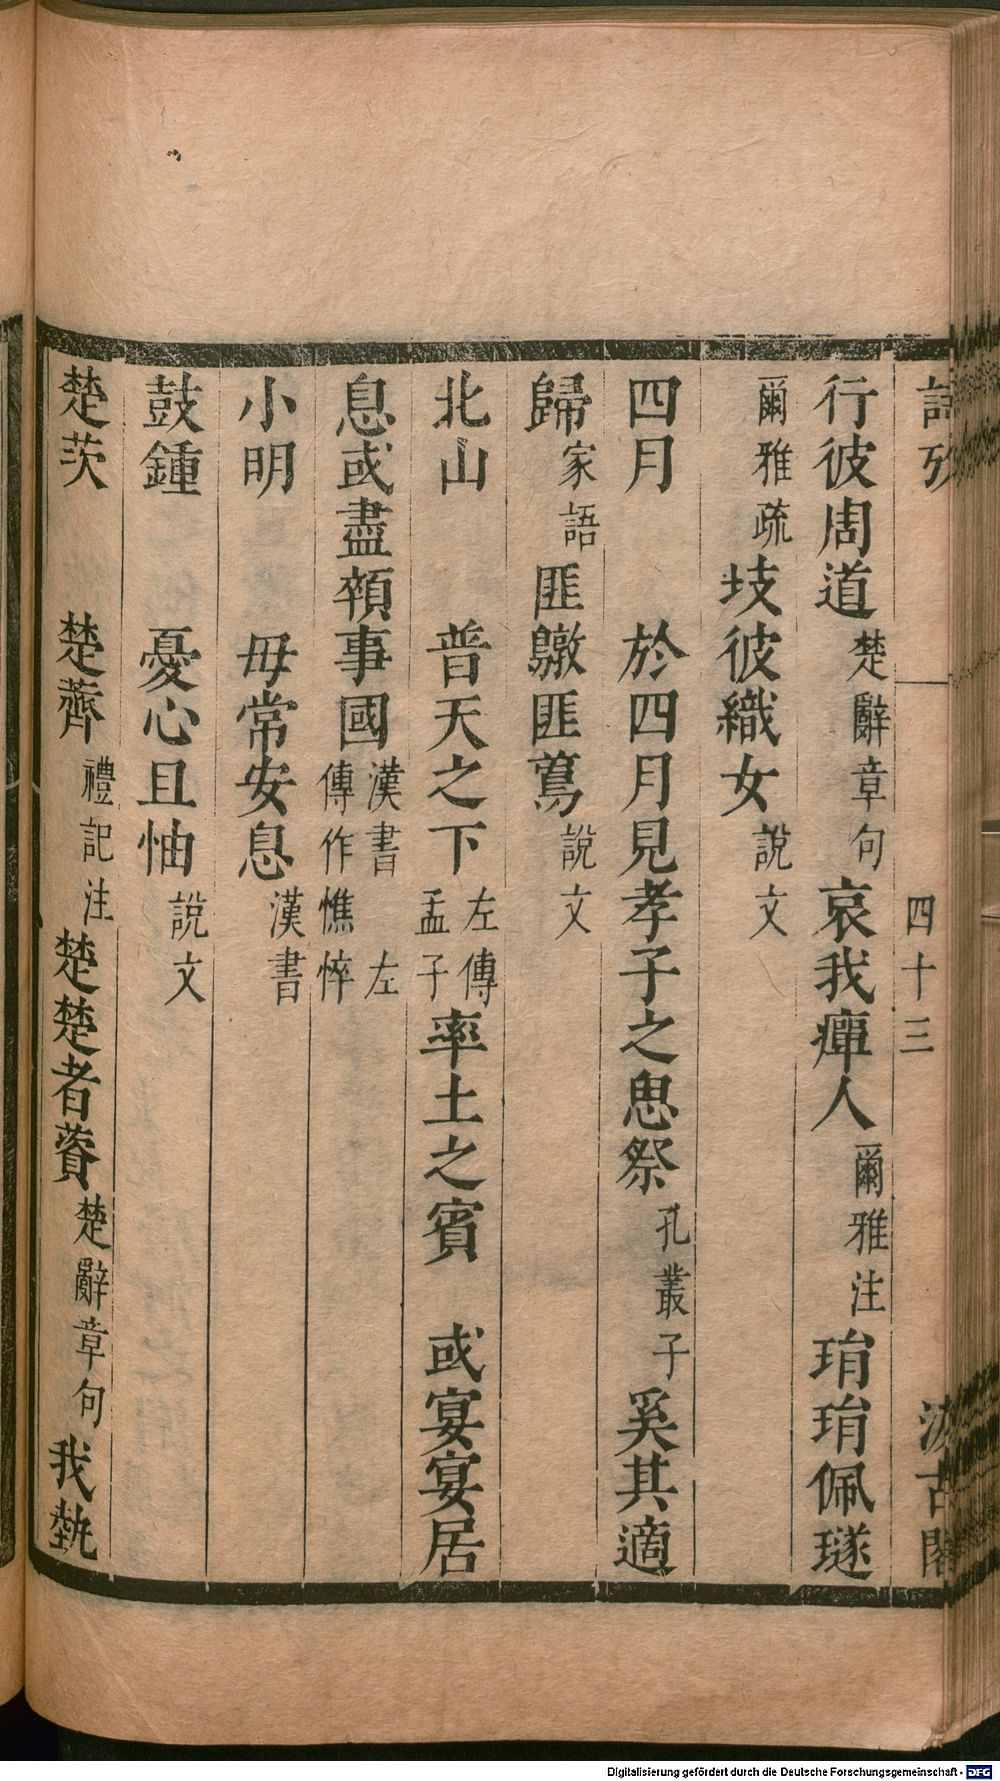 詩攷　四十三　汲古閣
行彼周道楚辭章句哀我瘅人爾雅注琄琄佩璲
爾雅疏㞨彼織女說文
四月　於四月見孝子之思祭孔叢子奚其適
歸家語匪鷻匪蔦說文
北山　普天之下左傳孟子率土之賓　或宴宴居
息或盡顇事國漢書左傳作憔悴
小明　毋常安息漢書
鼓鍾　憂心且怞說文
楚茨　楚薺禮記注楚楚者薋楚辭章句我埶
Digitalisierung gefördert durch die Deutsche Forschungsgemeinschaft - DFG